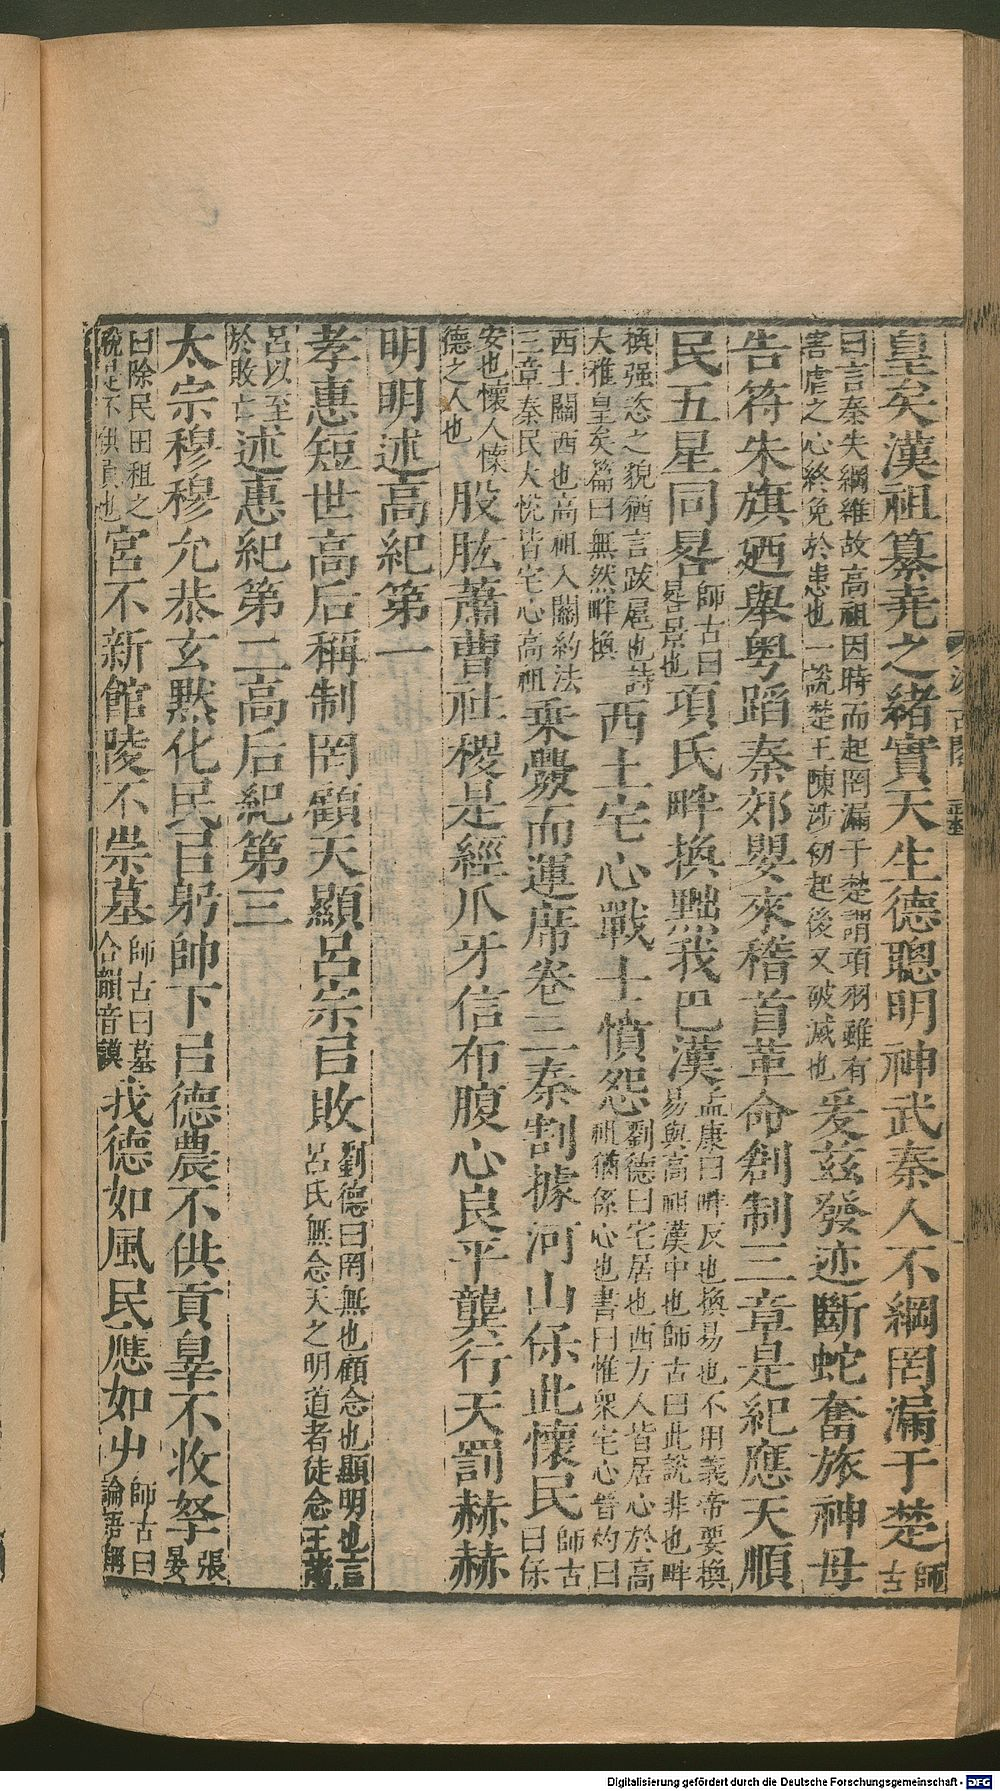 皇矣漢祖纂堯之緒實天生德聰明神武秦人不綱罔漏于楚師古
曰言秦失綱維故高祖因時而起罔漏于楚謂項羽雖有害虐之心終免於患也一說楚王陳涉初起後又破滅也爰茲發迹斷蛇奮旅神母
告符朱旗迺舉粵蹈秦郊嬰來稽首革命創制三章是紀應天順
民五星同晷師古曰晷景也項氏畔換黜我巴漢孟康曰畔反也換易也不用義帝要換易與高祖漢中也師古曰此說非也畔
換强恣之貌猶言跋扈也詩大雅皇矣篇曰無然畔換西土宅心戰士憤怨劉德曰宅居也西方人皆居心於高祖猶係心也書曰惟衆宅心晉灼曰
西土關西也高祖入關約法三章秦民大悅皆宅心高祖乘釁而運席卷三秦割據河山保此懷民師古曰保
安也懷人懷德之人也股肱蕭曹社稷是經爪牙信布腹心良平龔行天罰赫赫
明明述高紀第一
孝惠短世高后稱制罔顧天顯呂宗㠯敗劉德曰罔無也顧念也顯明也言呂氏無念天之明道者徒念王諸
呂以至於敗亡述惠紀第二高后紀第三
太宗穆穆允恭玄默化民㠯躬帥下㠯德農不供貢辠不收孥張晏
曰除民田租之稅是不供貢也宮不新館陵不崇墓師古曰墓合韻音謨我德如風民應如屮師古曰論語稱
Digitalisierung gefördert durch die Deutsche Forschungsgemeinschaft - DFG